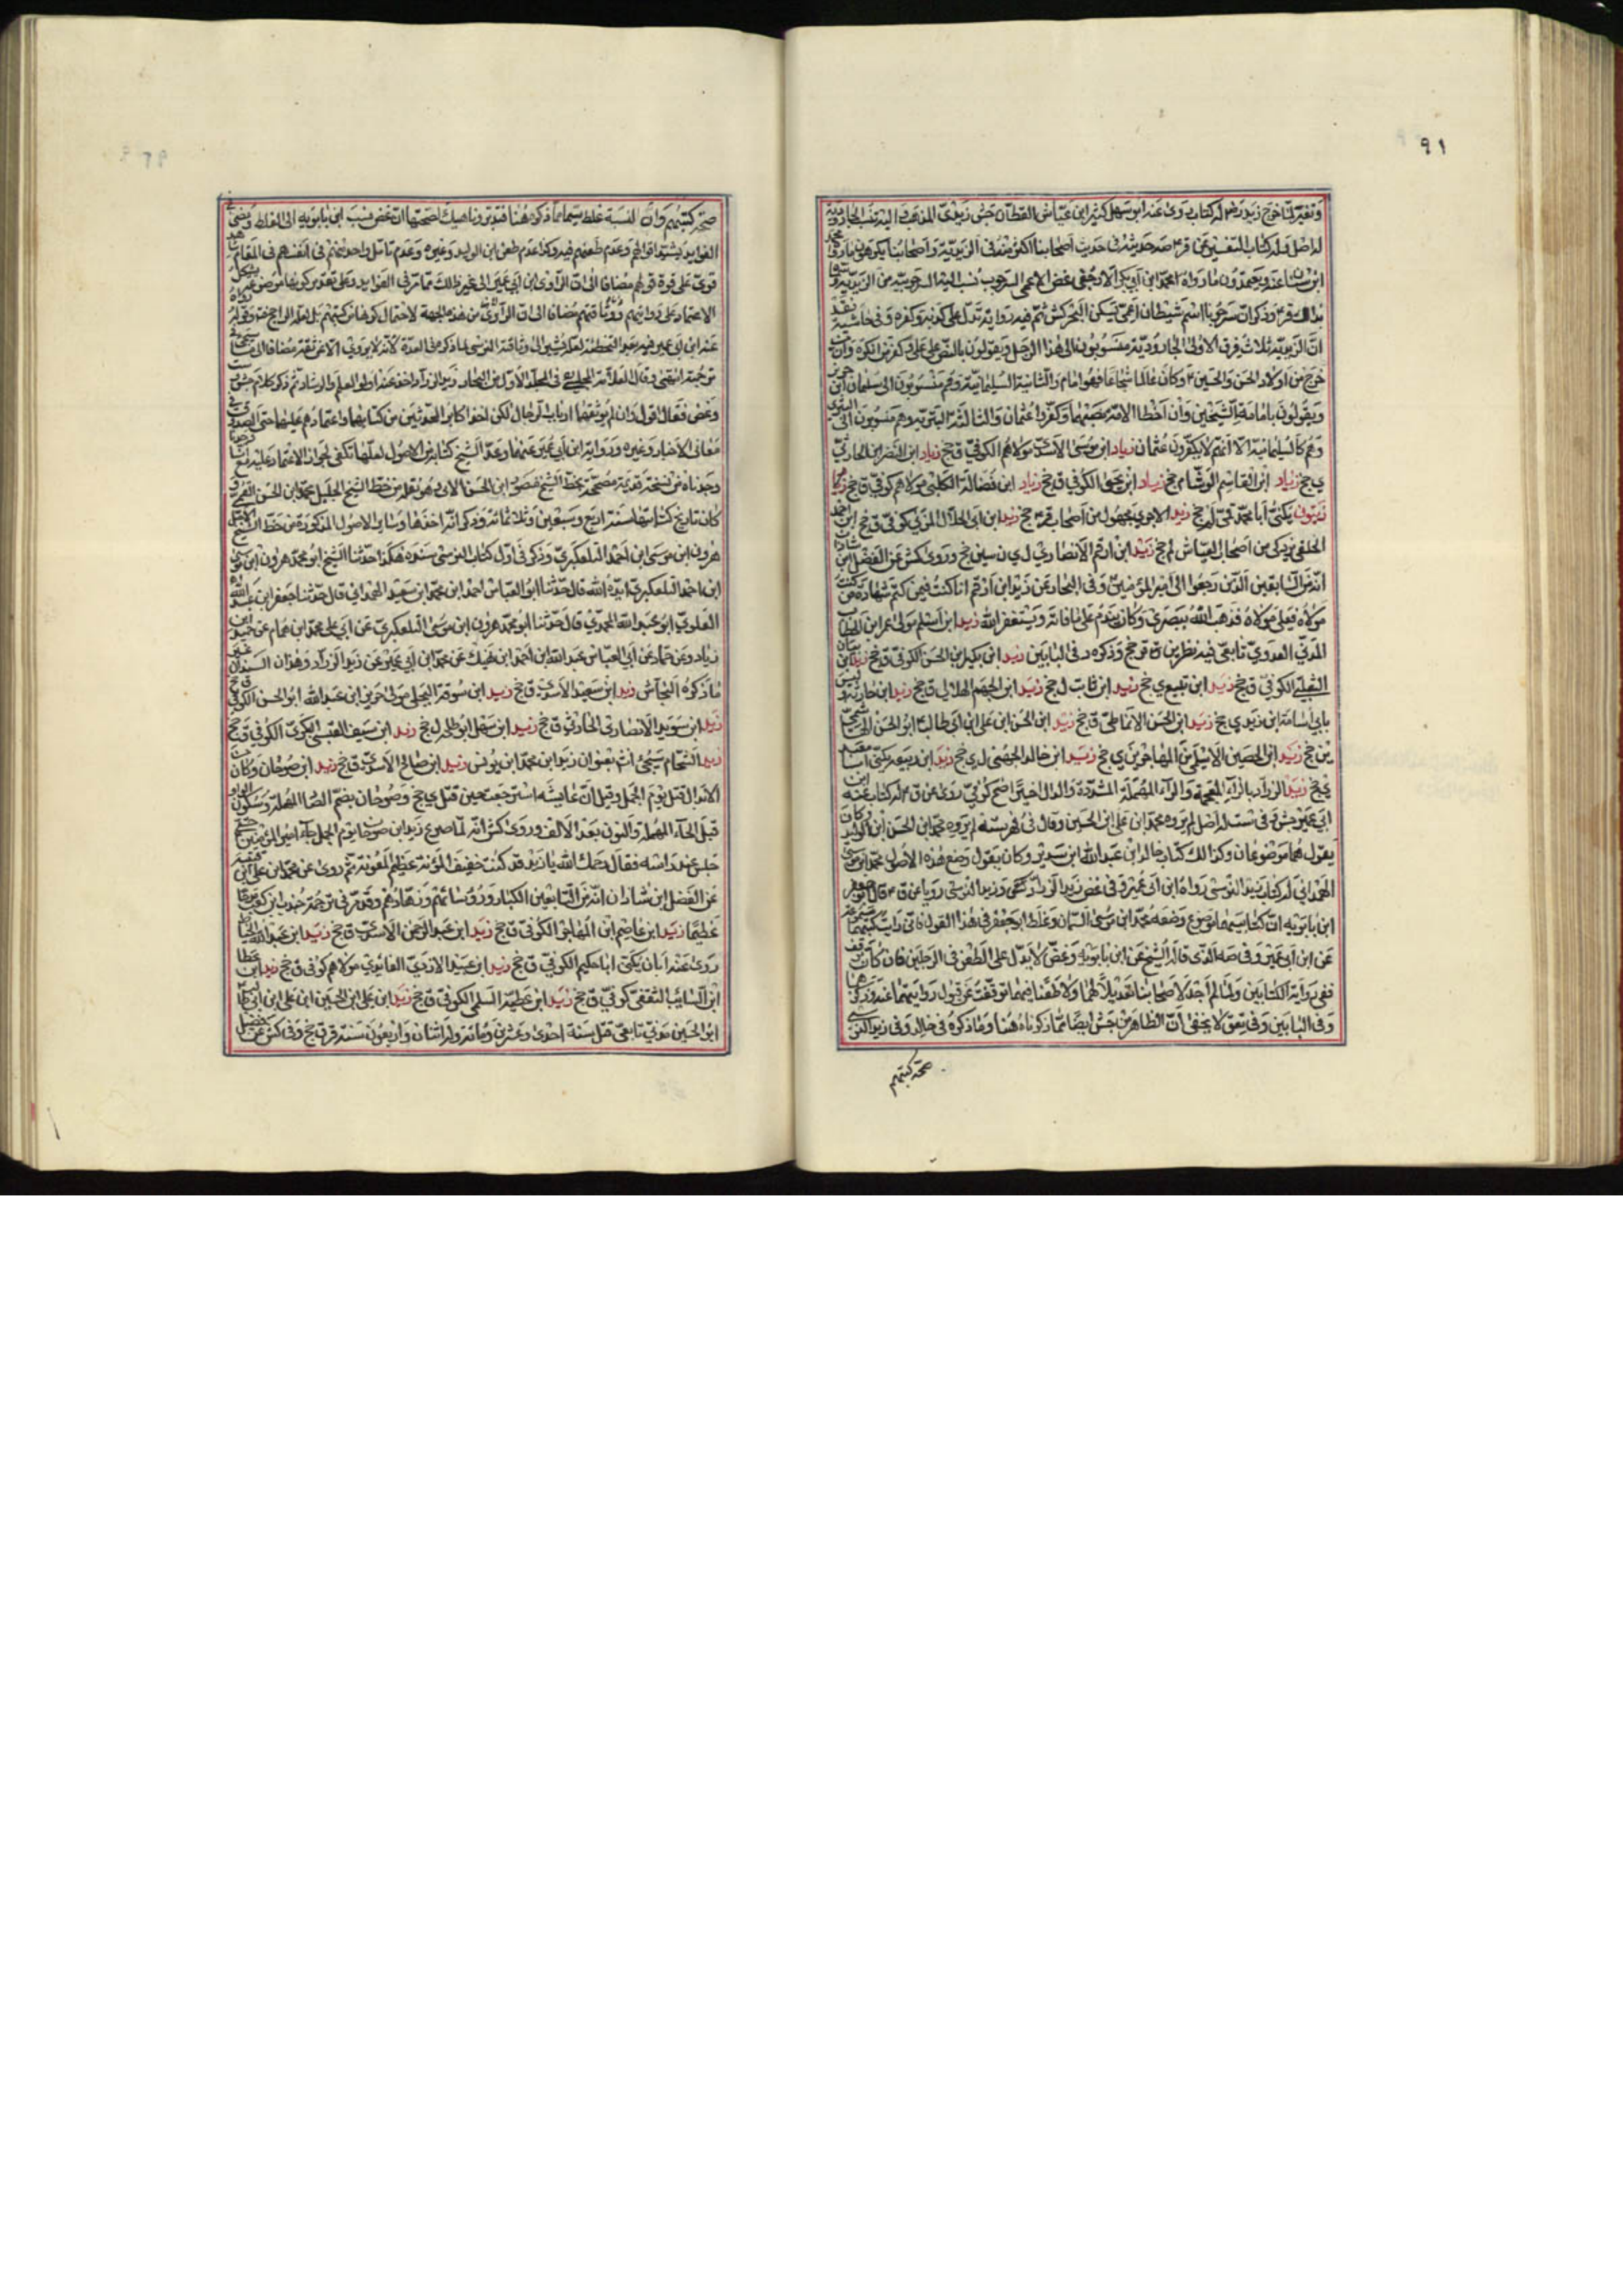 ٩١
وتغير لما خرج زيد رضه له كتاب روى عنه ابو سهل كثير ابن عياش القطان جش زيدي المذهب اليه تنسب الجارودية
له اصل وله كتاب التفسير عن قر ع صه حديثه في حديث اصحابنا اكثر منه في الزيدية واصحابنا يكرهون ما رواه محمد
ابن سنان عنه ويعتمدون ما رواه محمد ابن ابي بكر الارجني غض الاعمى السرحوب نسب اليه السرحوبية من الزيدية
بذلك قر ع وذكر ان سرحوبا اسم شيطان اعمى يسكن البحر كش ثم فيه روايه تدل على كذبه وكفره وفي حاشية نقد
ان الزيدية ثلاث فرق الاولى الجارودية منسوبون الى هذا الرجل ويقولون بالنص على علي وكفر من انكره وان من
خرج من اولاد الحسن والحسين ع وكان عالما شجاعا فهو امام والثانية السليمانية وهم منسوبون الى سليمان ابن جرير
ويقولون بامامة الشيخين وان اخطأ الامة بيعتهما وكفروا عثمان والثالثة البترية وهم منسوبون الى
وهم كالسليمانية الا انهم لا يكفرون عثمان زياد ابن موسى الاسدي مولاهم الكوفي ق جخ زياد ابن النضر الحارثي
ي جخ زياد ابن القاسم الوشا ي جخ زياد ابن يحيى الكوفي ق جخ زياد ابن فضالة الكلبي مولاهم كوفي ق جخ
زيتون يكنى ابا محمد قمي لم جخ زيد الاجري مجهول من اصحاب قر ع جخ زيد ابن ابي الحلال المزني كوفي ق جخ ابن احمد
الخلقي يزكى من اصحاب العياشي لم جخ زيد ابن ارقم الانصاري ل ي ن سين جخ وروى كش عن الفضل ابن شاذان
انه من السابقين الذين رجعوا الى امير المؤمنين ع وفي البحار عن زيد ابن ارقم انا كنت فيمن كتم شهادة من كنت
مولاه فعلي مولاه فذهب الله ببصري وكان يتندم على ما فاته ويستغفر الله زيد ابن اسلم مولى عمر ابن الخطاب
المدني العدوي تابعي فيه نظر ين ق جخ وذكره د في البابين زيد ابن بكير ابن الحسن الكوفي ق جخ زيد ابن بنان
التغلبي الكوفي ق جخ زيد ابن تبيع ي جخ زيد ابن ثابت ل جخ زيد ابن الجهم الهلالي ق جخ زيد ابن حارثة
بابي اسامة ابن زيد ي جخ زيد ابن الحسن الانماطي ق جخ زيد ابن الحسن ابن علي ابن ابي طالب ع ابو الحسن
ين جخ زيد ابن الحصين الاسلمي من المهاجرين ي جخ زيد ابن خالد الجهني ل ي جخ زيد ابن ربيعة يكنى
ي جخ زيد الزراد بالزاء المعجمة والراء المهملة المشددة والدال اخيرا ضح كوفي روى عن ق ع له كتاب عنه ابن
ابي عمير جش ق في ست له اصل لم يروه محمد ابن علي ابن الحسين وقال في فهرسته لم يروه محمد ابن الحسن ابن الوليد وكان
يقول هما موضوعان وكذلك كتاب خالد ابن عبد الله ابن سدير وكان يقول وضع هذه الاصول محمد ابن موسى
الهمداني له كتاب زيد النرسي رواه ابن ابي عمير و في غض زيد الزراد كوفي وزيد النرسي رويا عن ق ع قال ابو جعفر
ابن بابويه ان كتابيهما موضوع وضعه محمد ابن موسى السمان وغلط ابو جعفر في هذا القول فاني رايت كتبهما
عن ابن ابي عمير وفي صه الذي قاله الشيخ عن ابن بابويه وغض لا يدل على الطعن في الرجلين فان كان
ففي رواية الكتابين ولما لم اجد لاصحابنا تعديلا لهما ولا طعنا فيهما توقفت عن قبول روايتهما عنه وذكر
وفي البابين وفي تعق لا يخفى ان الظاهر من جش ايضا مما ذكرناه هنا وما ذكره في خالد وفي زيد النرسي
صحة كتبهم
صحة كتبهم وان النسبة غلط سيما مما ذكره هنا فتدبر وناهيك لصحتها ان غض نسب ابن بابويه الى الغلط
الفوايد يشير الى الجم وعدم طعنهم فيه وكذا عدم طعن ابن الوليد وغيره وعدم تامل واحد منهم في انفسهم في المقام
قوي على قوة قولهم مضافا الى ان الراوي ابن ابي عمير الى غير ذلك مما مر في الفوايد وعلى تقدير كونها موضوعة
الاعتماد على رواياتهم مضافا الى ان الراوي من هذه الجهة لاحتمال كونها من كتبهم بل لعله الراجح
ترجمته انتهى وقال العلامة المجلسي ره في المجلد الاول من البحار زيد الزراد اخذ عنه اولو العلم والرشاد ثم ذكر كلام جش
وغض فقال اقول وان لم يوثقهما ارباب الرجال لكن اخذ اكابر المحدثين من كتابهما واعتمادهم عليهما حتى الصدوق في
معاني الاخبار وغيره ورواية ابن ابي عمير عنهما وعد الشيخ كتابهما من الاصول لعلها تكفي لجواز الاعتماد عليهما
وجدناه من نسخة قديمة مصححة بخط الشيخ منصور ابن الحسن الابي وهو نقله من خط الشيخ الجليل محمد ابن الحسن القمي و
كان تاريخ كتابتها سنة اربع وسبعين وثلاثمائة وذكر انه اخذهما وساير الاصول المذكورة من خط الشيخ الاجل
هرون ابن موسى ابن احمد التلعكبري وذكر في اول كتاب النرسي سنده هكذا حدثنا الشيخ ابو محمد هرون ابن موسى
ابن احمد التلعكبري ايده الله قال حدثنا ابو العباس احمد ابن محمد ابن سعيد الهمداني قال حدثنا جعفر ابن عبد الله
العلوي ابو عبد الله المحمدي قال حدثنا ابو محمد هرون ابن موسى التلعكبري عن ابي علي محمد ابن همام عن حميد ابن
زياد وعن حماد عن ابي العباس عبد الله ابن احمد ابن نهيك عن محمد ابن ابي عمير عن زيد الزراد وهذان السندان غير
ما ذكره النجاشي زيد ابن سعيد الاسدي ق جخ زيد ابن سوقة البجلي مولى جرير ابن عبد الله ابو الحسن الكوفي ق جخ
زيد ابن سويد الانصاري الحارثي ق جخ زيد ابن سهل ابو طلحة ل جخ زيد ابن سيف القيسي البكري الكوفي ق جخ
زيد الشحام سيجئ انشه بعنوان زيد ابن محمد ابن يونس زيد ابن صالح الاسدي ق جخ زيد ابن صوحان وكان من
الابدال قتل يوم الجمل وقيل ان عايشة استرجعت حين قتل ي جخ وصوحان بضم الصاد المهملة وسكون الواو
قبل الحاء المهملة والنون بعد الالف وروى كش انه لما صرع زيد ابن صوحان يوم الجمل جاء امير المؤمنين ع حتى
جلس عند راسه فقال رحمك الله يا زيد قد كنت خفيف المؤنة عظيم المعونة ثم روى عن محمد ابن علي ابن قتيبة
عن الفضل ابن شاذان انه من التابعين الكبار ورؤسائهم وزهادهم وقد مر في ترجمة جندب ابن كعب
عظيما زيد ابن عاصم ابن المهاجر الكوفي ق جخ زيد ابن عبد الرحمن الاسدي ق جخ زيد ابن عبد الله الخياط
روى عنه ابان يكنى ابا حكيم الكوفي ق جخ زيد ابن عبيد الازدي الغامدي مولاهم كوفي ق جخ زيد ابن عطا
ابن السايب الثقفي كوفي ق جخ زيد ابن عطية السلمي الكوفي ق جخ زيد ابن علي ابن الحسين ابن علي ابن ابي طالب
ابو الحسين مدني تابعي قتل سنة احدى وعشرين ومائة وله اثنان واربعون سنة قر ق جخ وفي كش عن فضيل